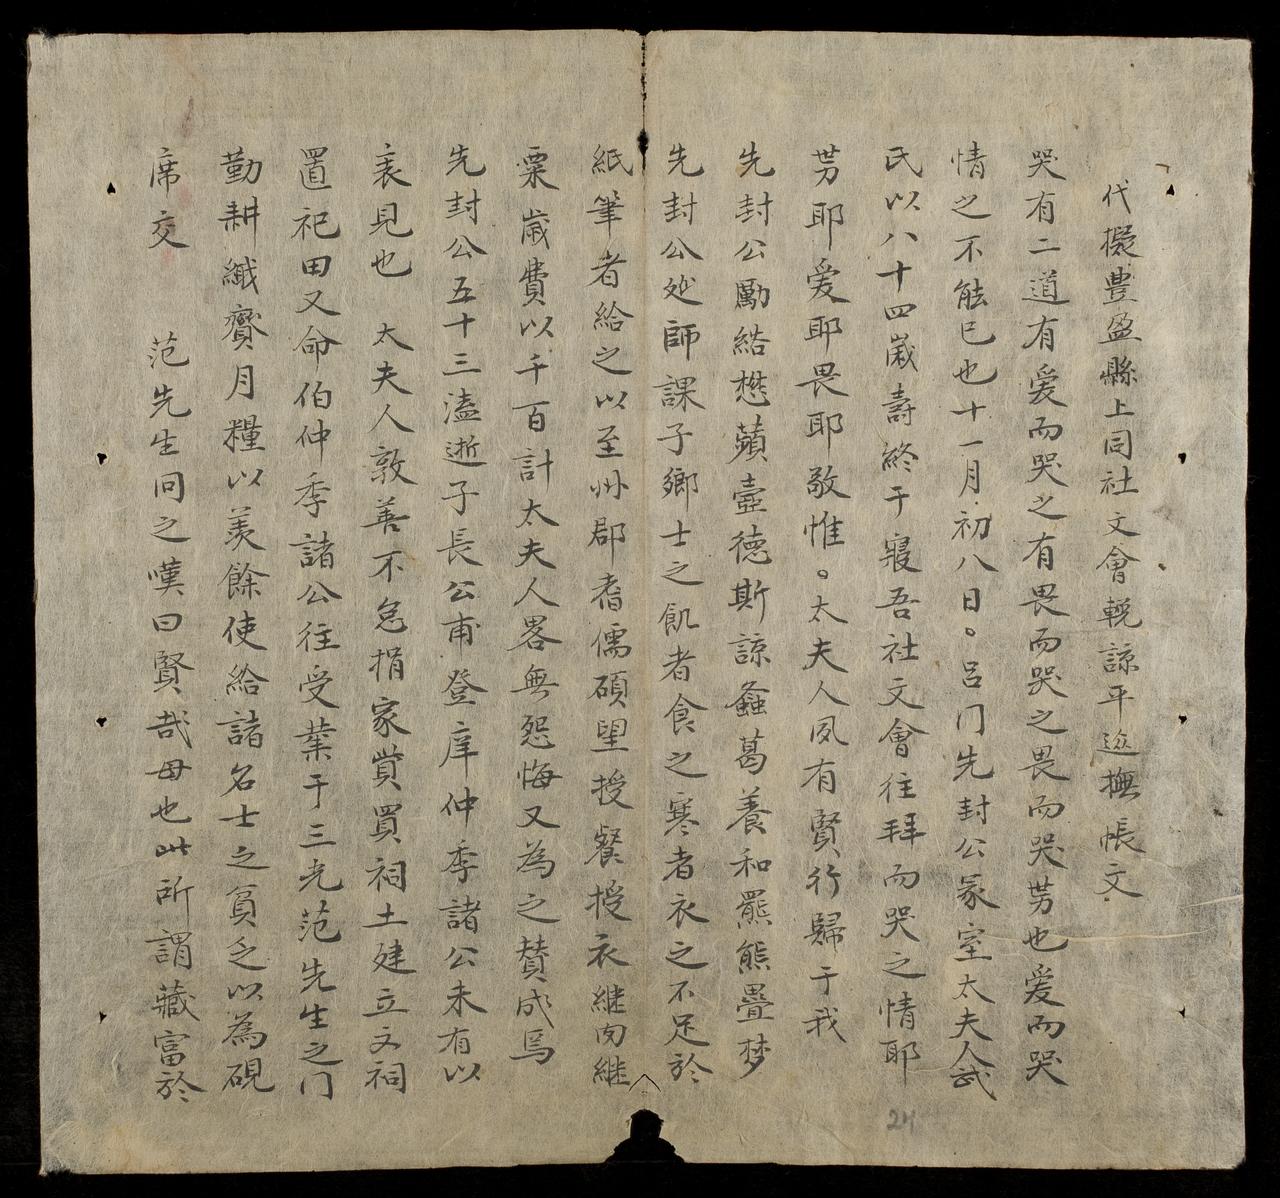 代擬豊盈縣上同社文會輓諒平巡撫帳文
哭有二道有爱而哭之有畏而哭之畏而哭劳也爱而哭
情之不能已也十一月初八日。吕门先封公冢室太夫人武
氏以八十四歲壽終于寢吾社文會往拜而哭之情耶
劳耶爱耶畏耶敬惟。太夫人夙有賢行歸于我
先封公勵結懋蘋壼德斯諒螽葛養和羆熊疊梦
先封公延師課子鄉士之飢者食之寒者衣之不足於
紙筆者給之以至州郡耆儒碩望授餐授衣継肉継
粟歲費以千百計太夫人畧無怨悔又為之賛成焉
先封公五十三溘逝子長公甫登庠仲季諸公未有以
表見也 太夫人敦善不怠捐家貲買祠土建立文祠
置祀田又命伯仲季諸公往受業于三光范先生之门
勤耕纖賷月糧以羡餘使給諸名士之貧乏以為硯
席交 范先生同之嘆曰賢哉母也此所謂藏富於